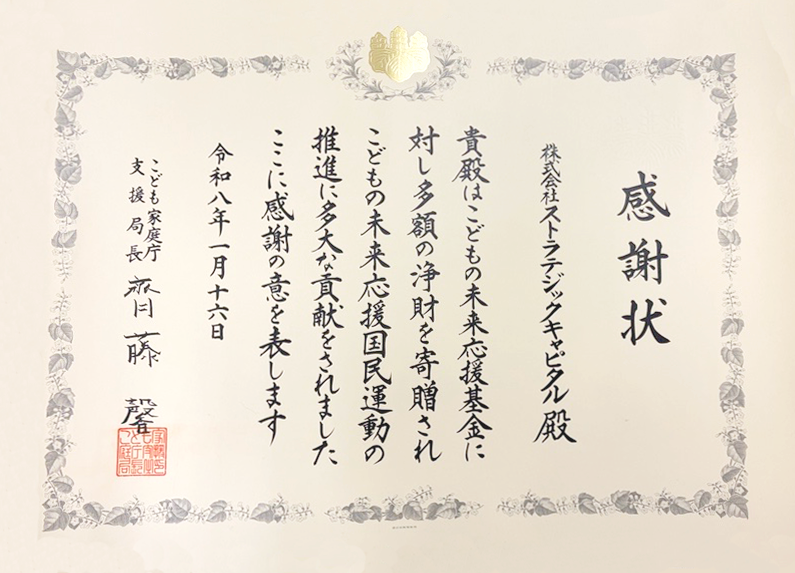 感謝状
株式会社ストラテジックキャピタル殿
貴殿はこどもの未来応援基金に
対し多額の浄財を寄贈され
こどもの未来応援国民運動の
推進に多大な貢献をされました
ここに感謝の意を表します
令和八年一月十六日
こども家庭庁
支援局長 齊藤 馨